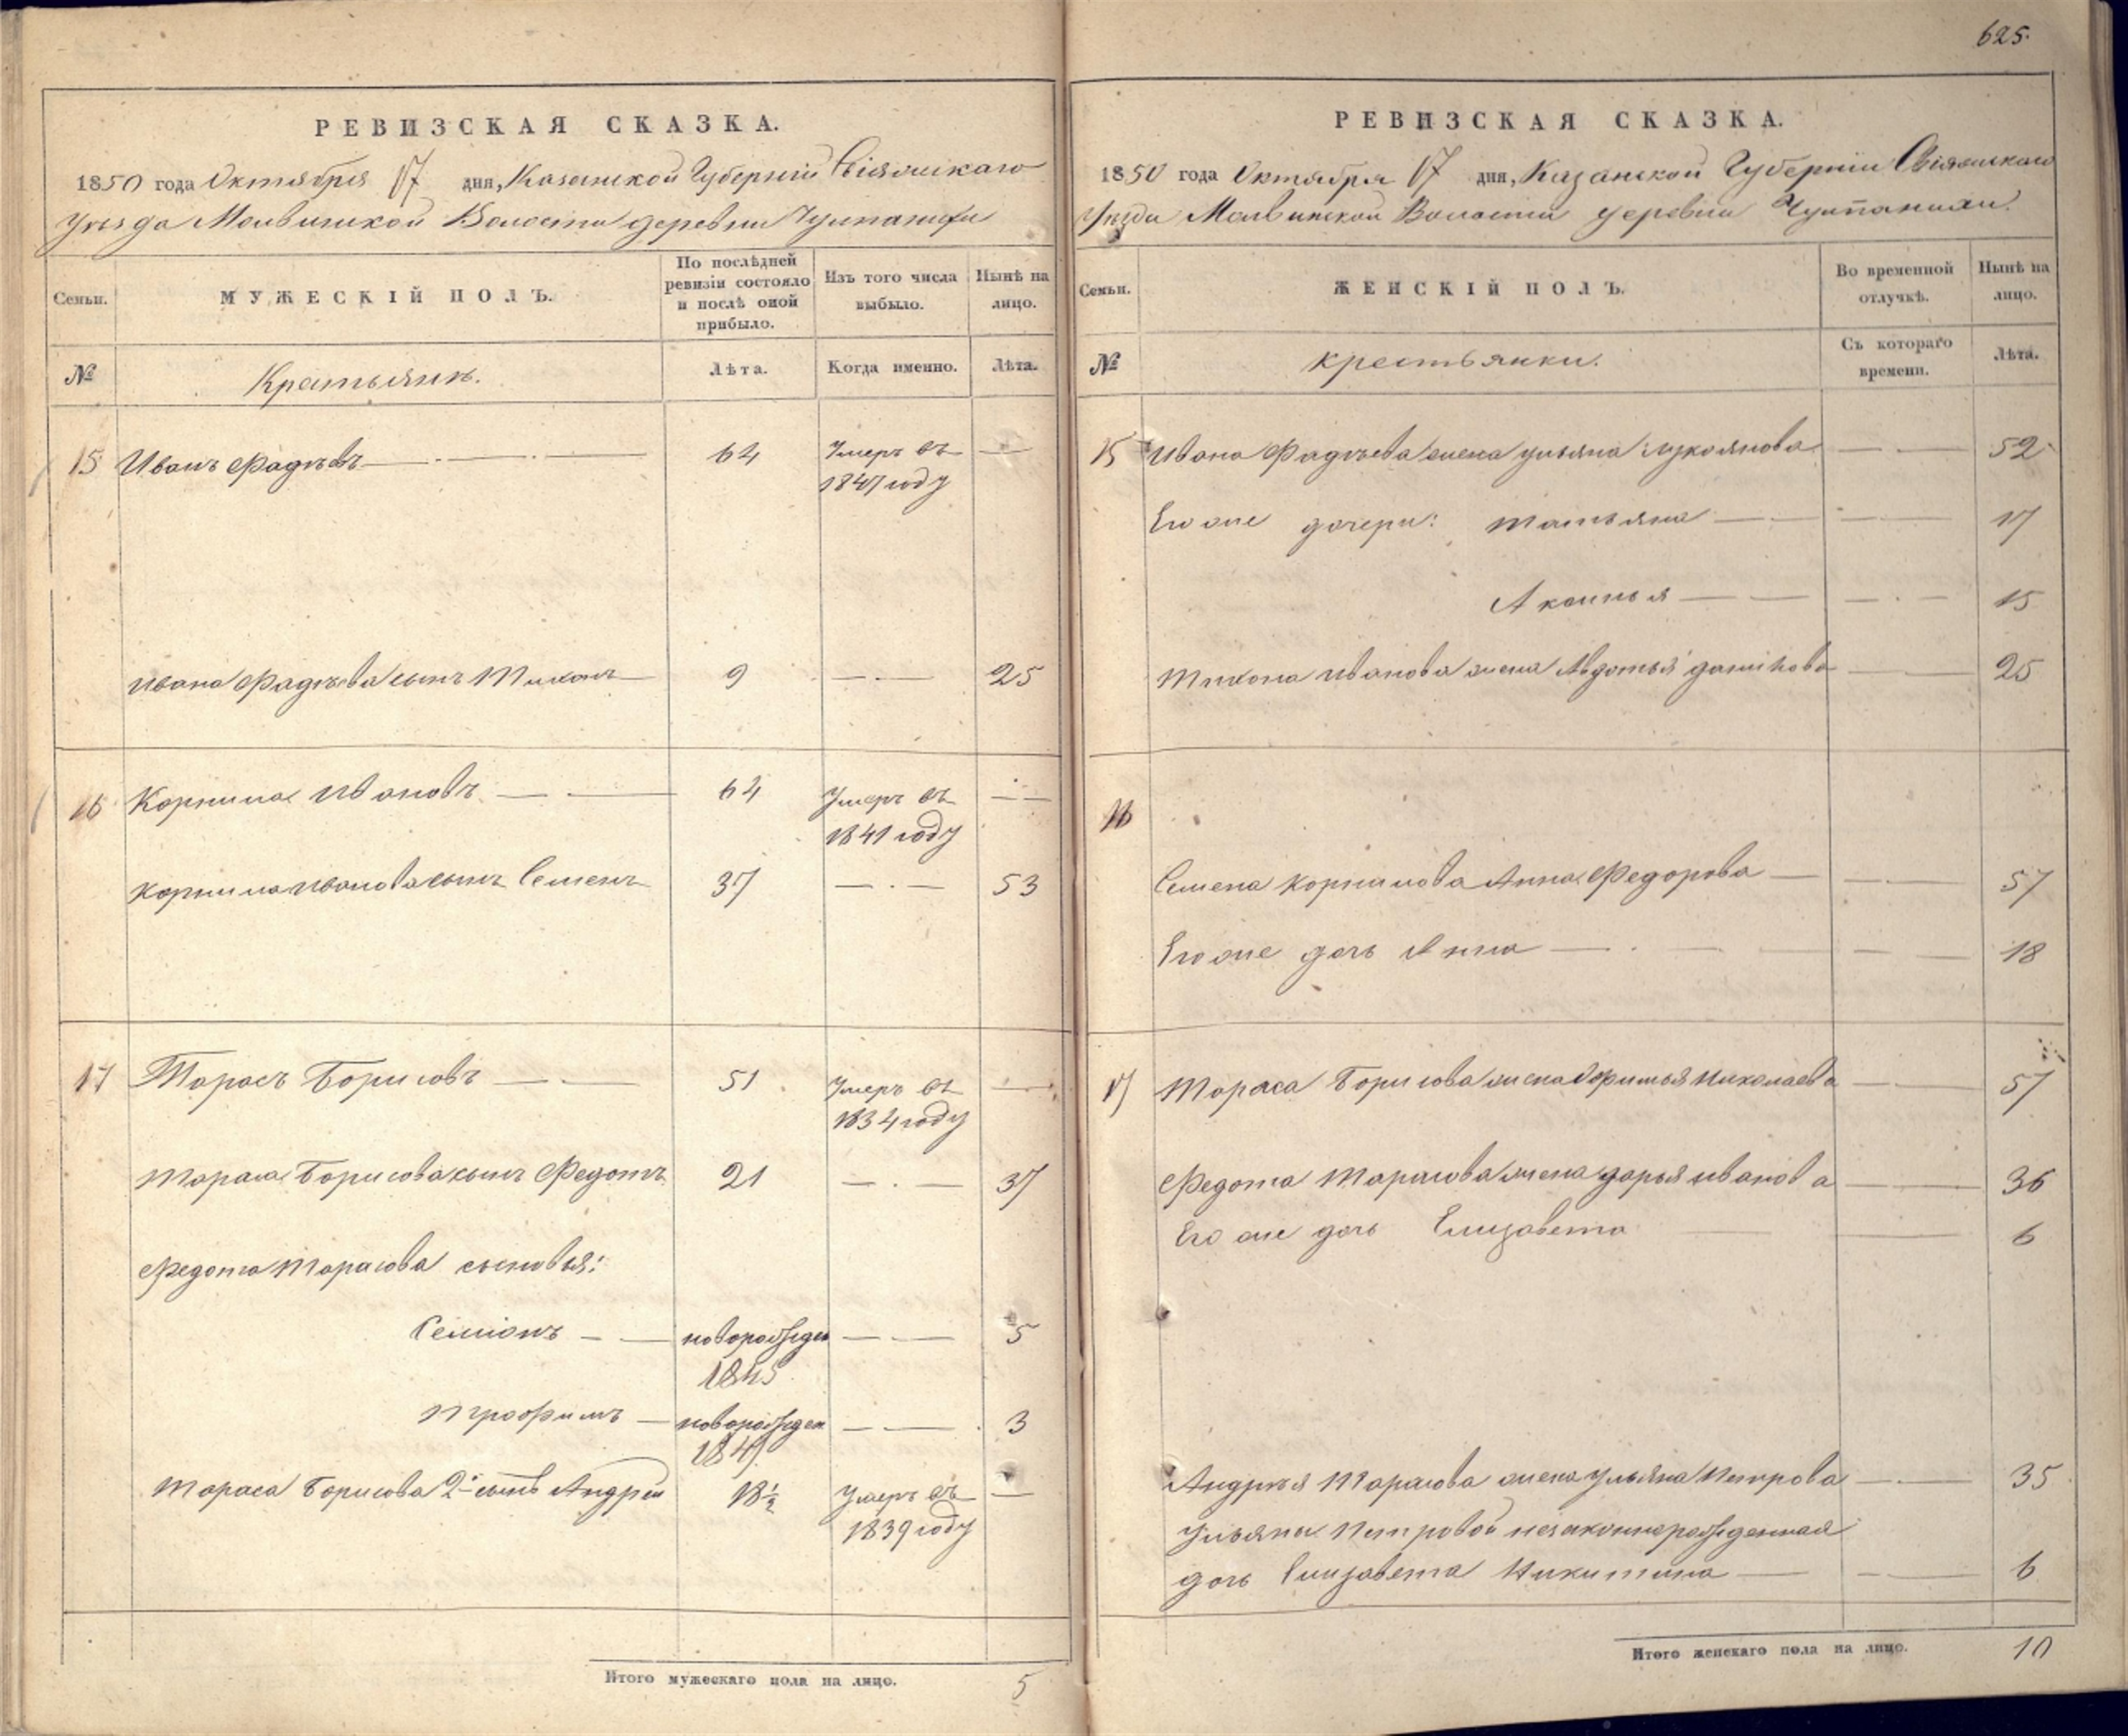 625.
РЕВИЗСКАЯ СКАЗКА.
1850 года Октября 17 дня, Казанской Губернии Свіяжскаго
уѣзда Молвинской Волости деревни
Семьи.
МУЖЕСКІЙ ПОЛЪ.
По послѣдней ревизіи состояло и послѣ оной прибыло.
Изъ того числа выбыло.
Нынѣ на лицо.
№
Крестьянъ.
Лѣта.
Когда именно.
Лѣта.
15 Иванъ Фадѣевъ — 64 Умеръ въ —
1847 году
Ивана Фадѣева сынъ Тихонъ 9 — 25
16 Корнила Ивановъ — 64 Умеръ въ —
1841 году
Корнила Иванова сынъ Семенъ 37 — 53
17 Тарасъ Борисовъ — 51 Умеръ въ —
1834 году
Тараса Борисова сынъ Федотъ 21 — 37
Федота Тарасова сыновья:
Семіонъ — новорожден — 5
1845
Трофимъ — новорожден — 3
1847
Тараса Борисова 2й сынъ Андрей 18½ Умеръ въ —
1839 году
Итого мужескаго пола на лицо. 5
РЕВИЗСКАЯ СКАЗКА.
1850 года Октября 17 дня, Казанской Губерніи Свіяжскаго
Уѣзда Молвинской Волости деревни
Семьи.
ЖЕНСКІЙ ПОЛЪ.
Во временной отлучкѣ.
Нынѣ на лицо.
№
крестьянки.
Съ котораго времени.
Лѣта.
15 Ивана Фадѣева жена Ульяна Лукоянова — 52
Его же дочери: Татьяна — 17
— 15
Тихона Иванова жена Авдотья — 25
16
Семена Корнилова Анна Федорова — 57
Его же дочь Анна — 18
17 Тараса Борисова жена Николаева — 57
Федота Тарасова жена Дарья Иванова — 36
Его же дочь Елизавета — 6
Андрѣя Тарасова жена Ульяна Петрова — 35
Ульяны Петровой незаконнорожденная
дочь Елизавета Никитина — 6
Итого женскаго пола на лицо. 10